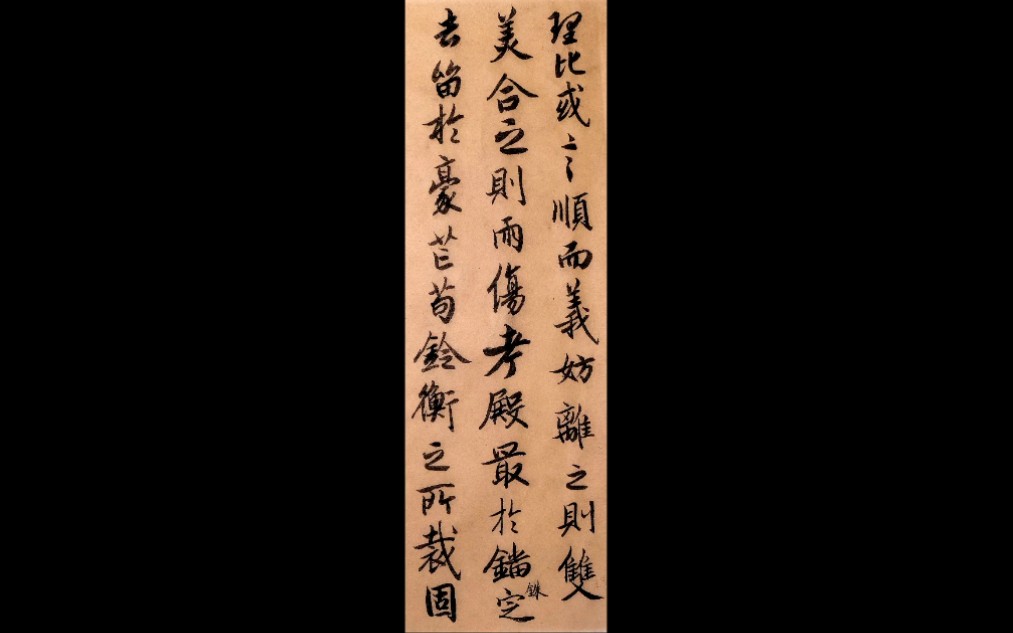 理比或言順而義妨離之則雙
美合之則兩傷考殿最於錙銖定
去留於豪芒苟銓衡之所裁固